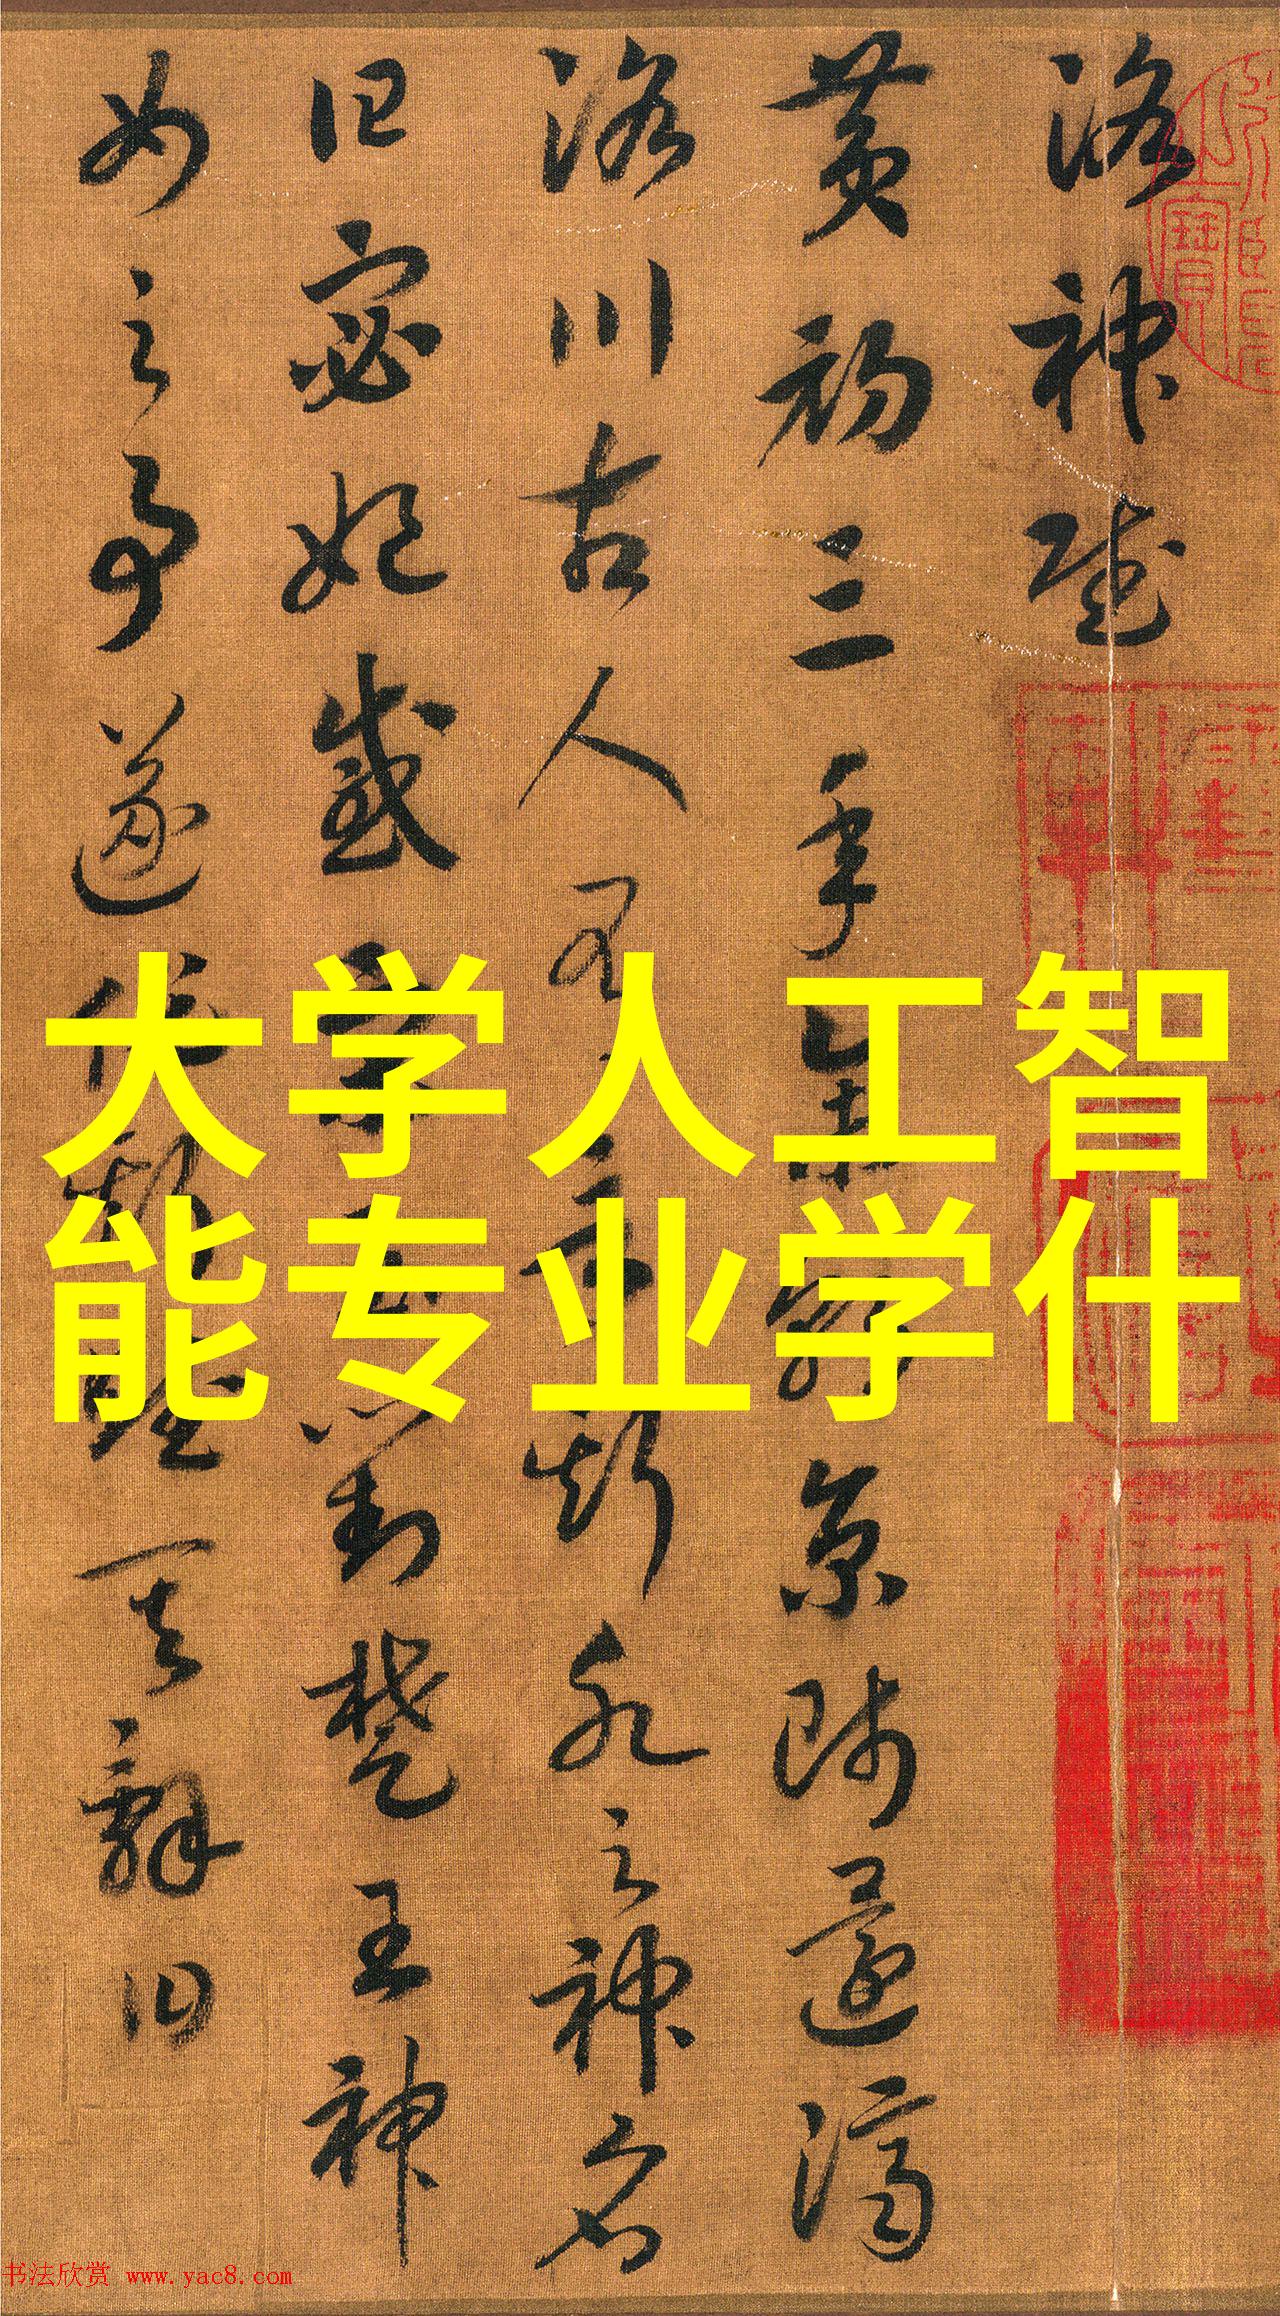 洛神賦
黄初三年余朝京師還濟
洛川古人有言斯水之神名
曰宓妃感宋玉對楚王神
女之事遂作斯賦其辭曰
大学人工智
能专业学什
书法欣赏 www.yac8.com